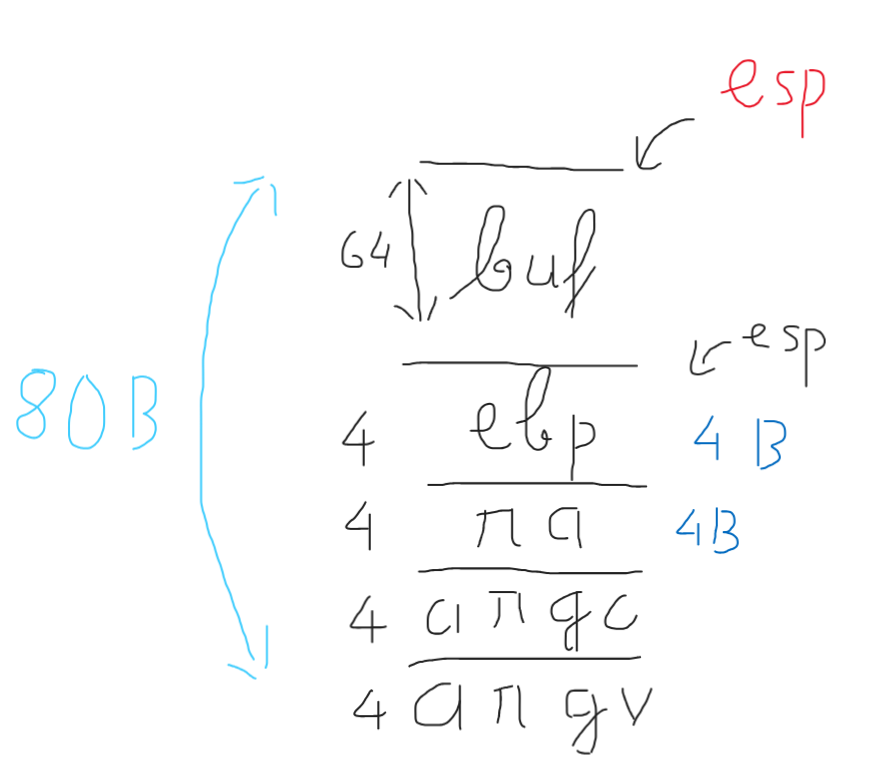 esp
64 buf
esp
80B
4 ebp 4 B
4 ra 4B
4 argc
4 argv